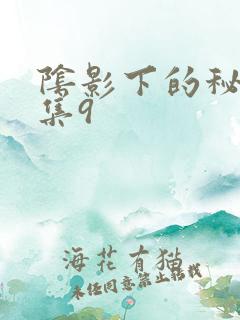 陰影下的秘
集9
海花有猫
未经同意禁止转载